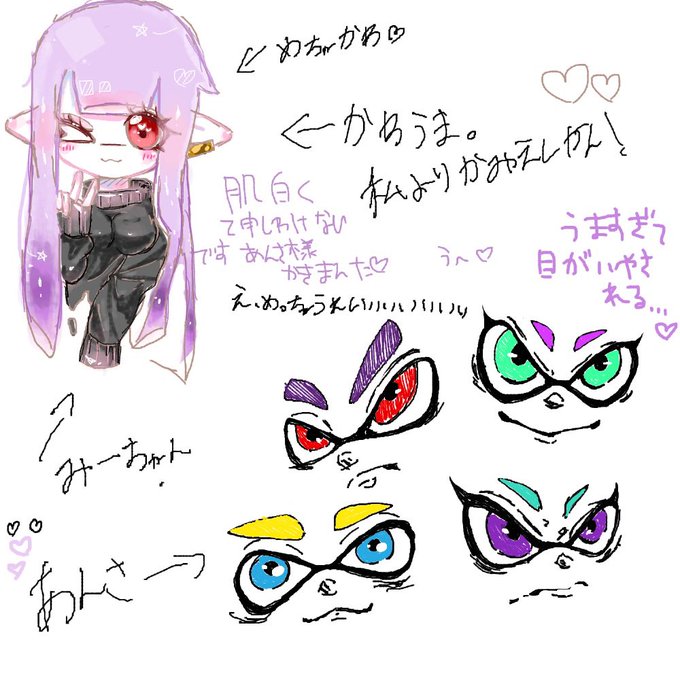 めちゃかわ♡
かわうま。
私よりかみえしやん!
肌白く
て申しわけない
です あんさ様
かきまんた♡
う〜♡
うますぎて
目がいやさ
れる...♡
え、めっちゃうれしい
みーちゃん
あんさ